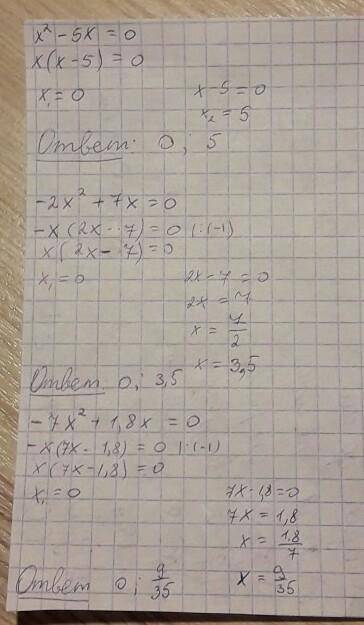 x² - 5x = 0
x(x - 5) = 0
x₁ = 0
x - 5 = 0
x₂ = 5
Ответ: 0; 5
-2x² + 7x = 0
-x(2x - 7) = 0 |:(-1)
x(2x - 7) = 0
x₁ = 0
2x - 7 = 0
2x = 7
x = 7/2
x = 3,5
Ответ 0; 3,5
-7x² + 1,8x = 0
-x(7x - 1,8) = 0 |:(-1)
x(7x - 1,8) = 0
x₁ = 0
7x - 1,8 = 0
7x = 1,8
x = 1,8/7
x = 9/35
Ответ 0; 9/35